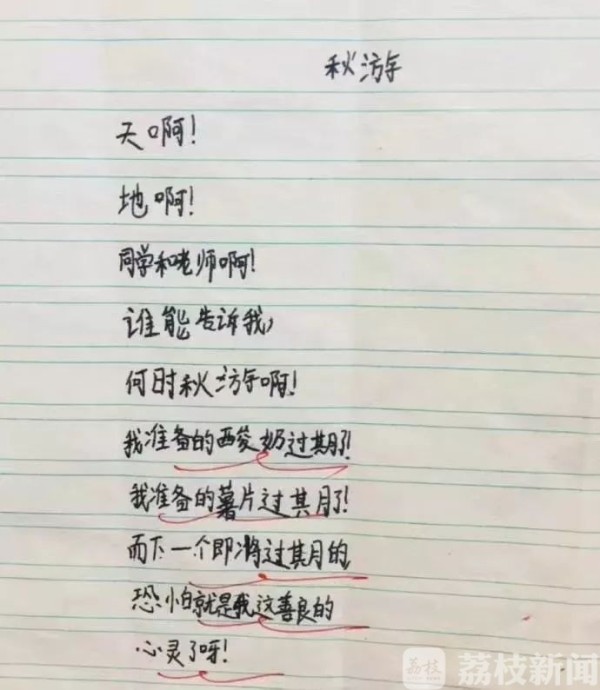 秋游
天啊！
地啊！
同学和老师啊！
谁能告诉我，
何时秋游啊！
我准备的酸奶过期了！
我准备的薯片过期了！
而下一个即将过期的
恐怕就是我这善良的
心灵了呀！
荔枝
荔枝新闻